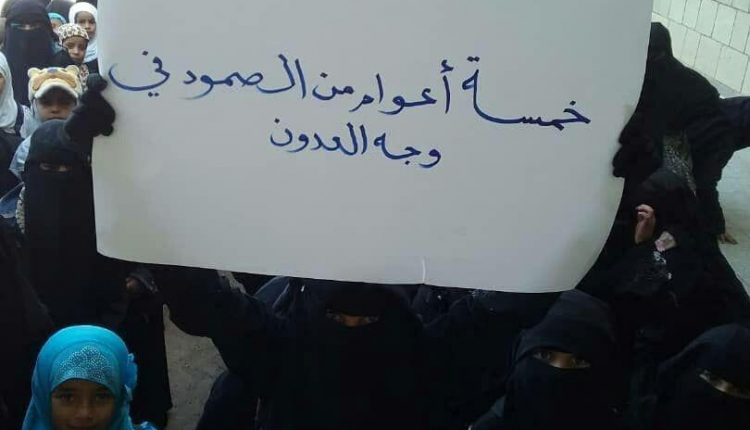 خمسة أعوام من الصمود في
وجه العدون